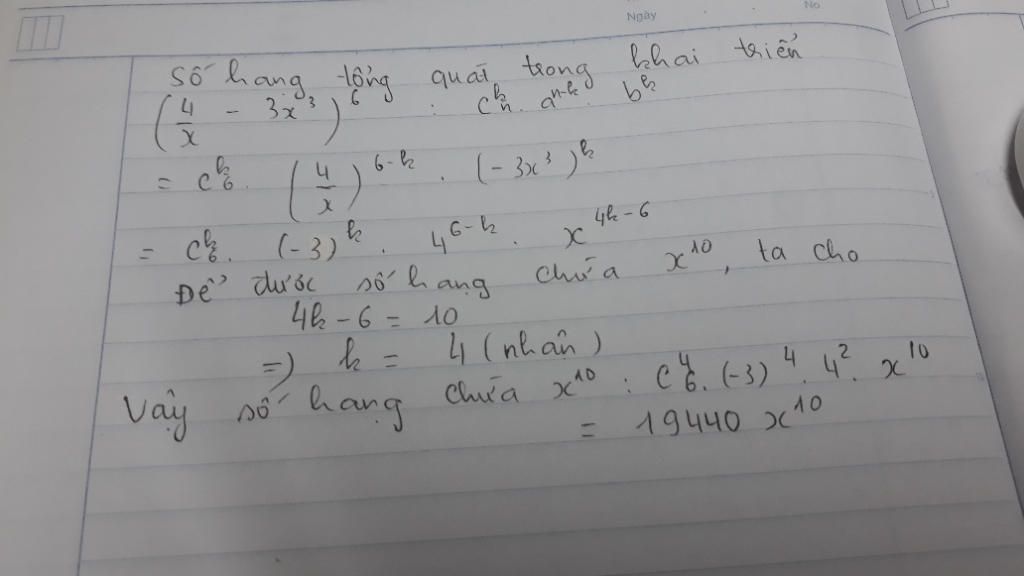 Ngày
No
Số hạng tổng quát trong khai triển
(4/x - 3x³)⁶ : Cᵏₙ. aⁿ⁻ᵏ. bᵏ
= Cᵏ₆. (4/x)⁶⁻ᵏ. (-3x³)ᵏ
= Cᵏ₆. (-3)ᵏ. 4⁶⁻ᵏ. x⁴ᵏ⁻⁶
Để được số hạng chứa x¹⁰, ta cho
4k - 6 = 10
=) k = 4 (nhân)
Vậy số hạng chứa x¹⁰ : C⁴₆. (-3)⁴. 4². x¹⁰
= 19440 x¹⁰